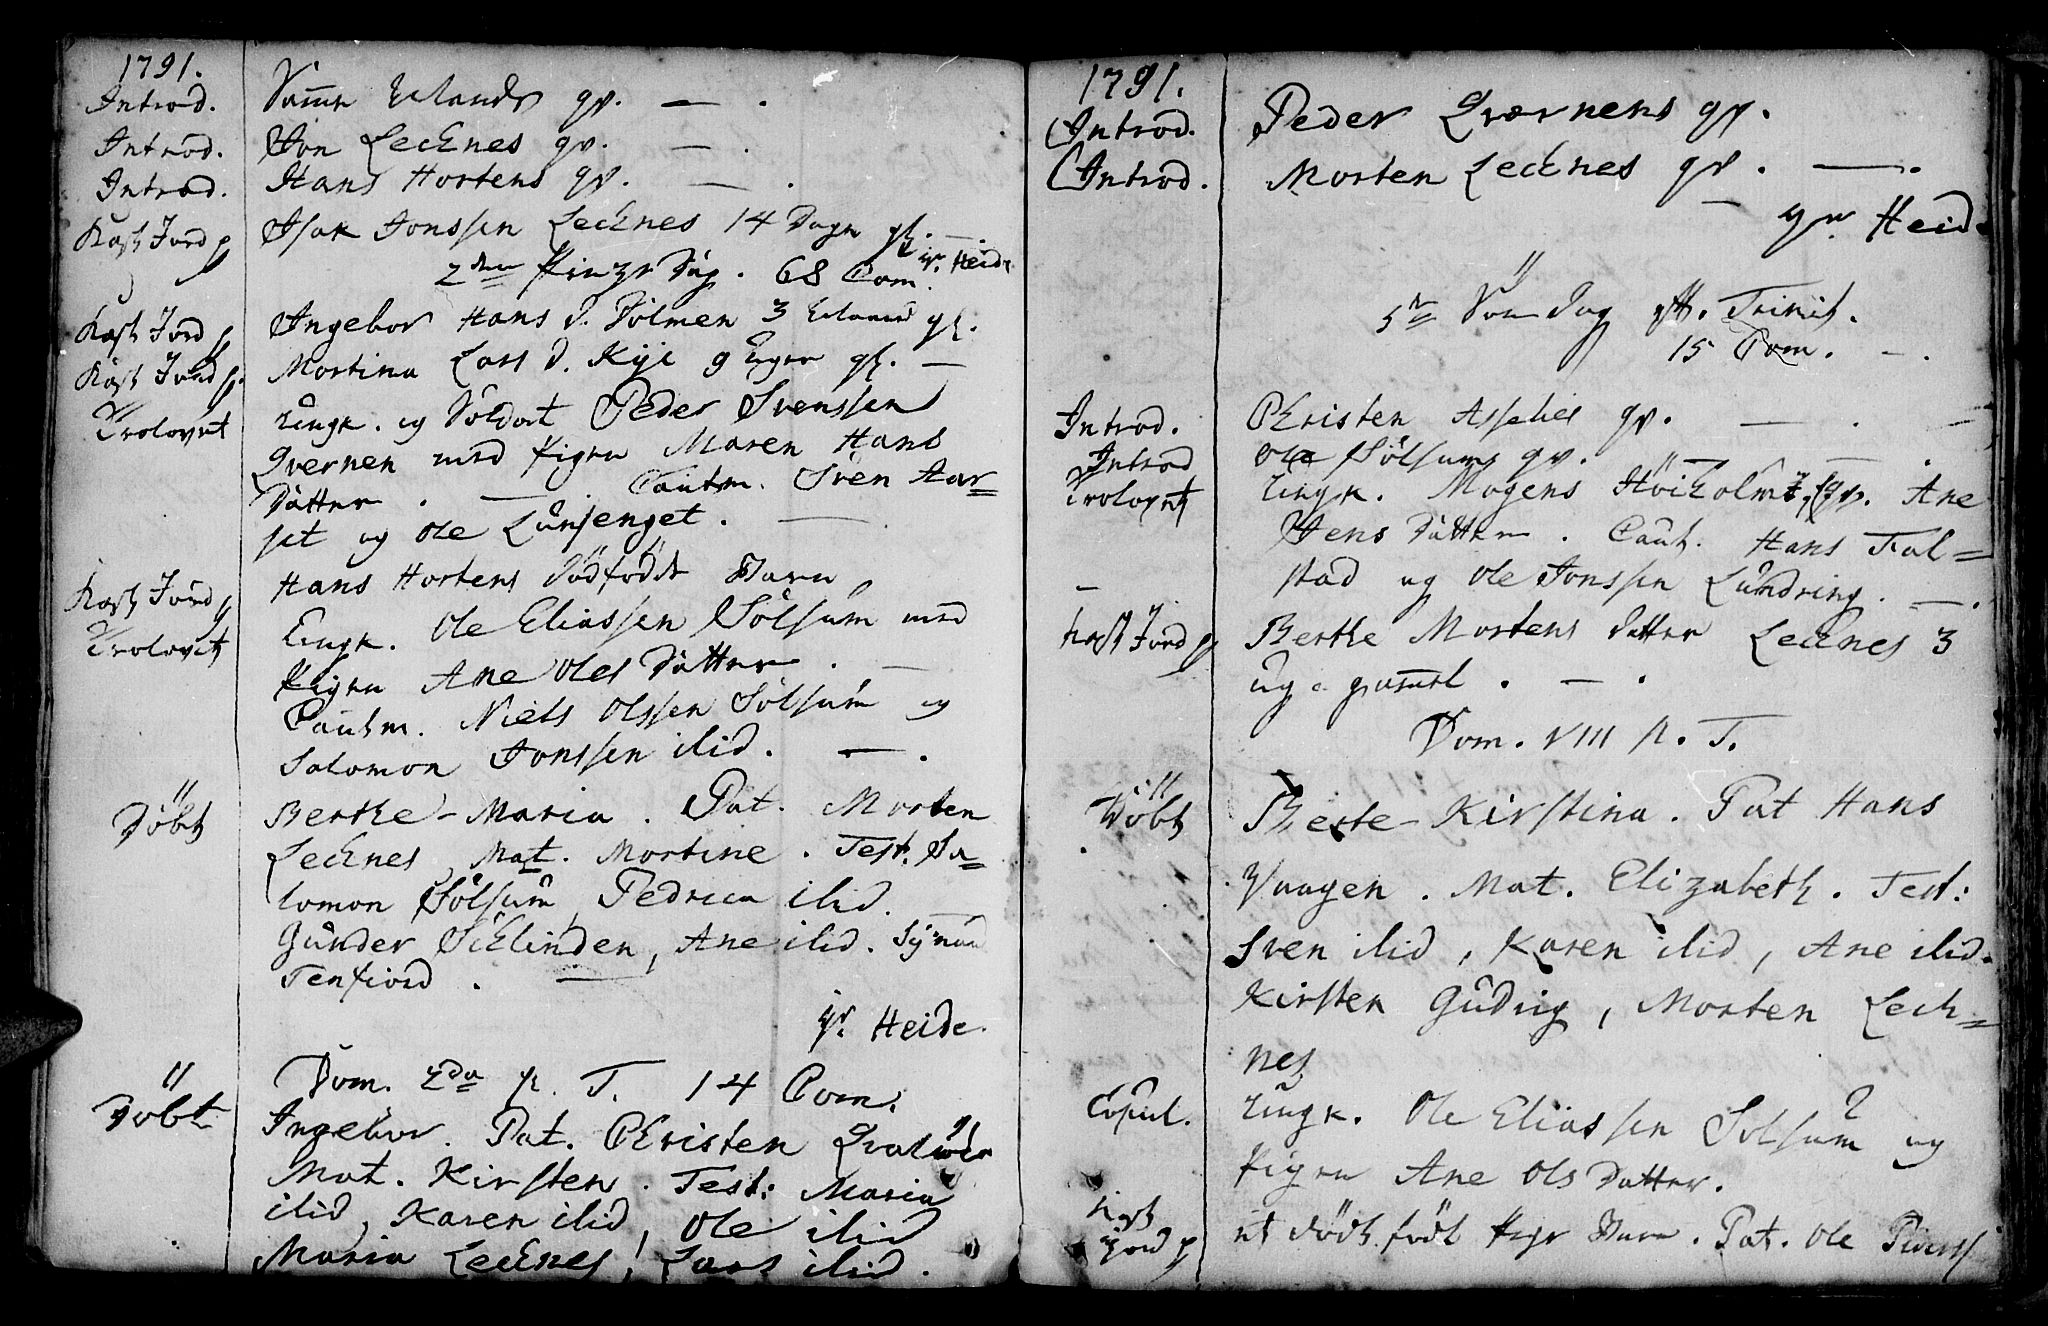 1791.
Introd. Hans gv. — .
Introd. Jon Lechnes gv. — .
Introd. Hans Hortens gv. — .
Kast Jord p Isak Jonssen Lechnes 14 Dage gl. —
2den Pinze Dag. 68 Com. Heide
Kast Jord p Ingebor Hans D. Dolmen 3 gl.
Kast Jord p. Mortina Lars D. Kye 9 Uger gl. —
Trolovet Ungk. og Soldat Peder Svenssen
Qvernen med Pigen Maren Hans
Datter . — Cautm. Sven Aar=
set og Ole Lünsenget . —
Kast Jord p Hans Hortens Dödfödt Barn
Trolovet Ungk. Ole Eliassen Sölsum med
Pigen Ane Oles Datter . —
Cautm. Niels Olssen Sölsum og
Salomon Jonssen ilid. — .
Döbt Berthe-Maria . Pat. Morten
Lechnes, Mat. Mortine . Test. Sa=
lomon Sölsum, Pedrica ilid.
Gunder Schlinden, Ane ilid.
Tenfiord . —
Heide.
Dom. 2da p. T. 14 Com.
Döbt Ingebor. Pat. Christen
Mat. Kirsten . Test: Maria
ilid, Karen ilid, Ole ilid
Maria Lechnes, Lars ilid.
1791.
Introd. Peder Qværnens gv.
Introd. Morten Lechnes gv. — .
Heide
5te Söndag eft. Trinit.
15 Com. — .
Introd. Christen Asselies gv. — . —
Introd Ole Sölsums gv. — .
Trolovet Ungk. Mogens gv. Ane
Jens Datter . Caut. Hans Fal=
stad og Ole Jonssen Lundring. — .
Kast Jord p Berthe Mortens Datter Lechnes 3
Uge gammel . — .
Dom. VIII p. T.
Döbt Berte-Kirstina . Pat Hans
Vaagen . Mat. Elizabeth . Test:
Sven ilid, Karen ilid, Ane ilid.
Kirsten Gudrig, Morten Lech=
nes
Copul. Ungk. Ole Eliassen Solsum og
Pigen Ane Ols Datter.
Kast Jord p et dödt födt Pige Barn . Pat. Ole